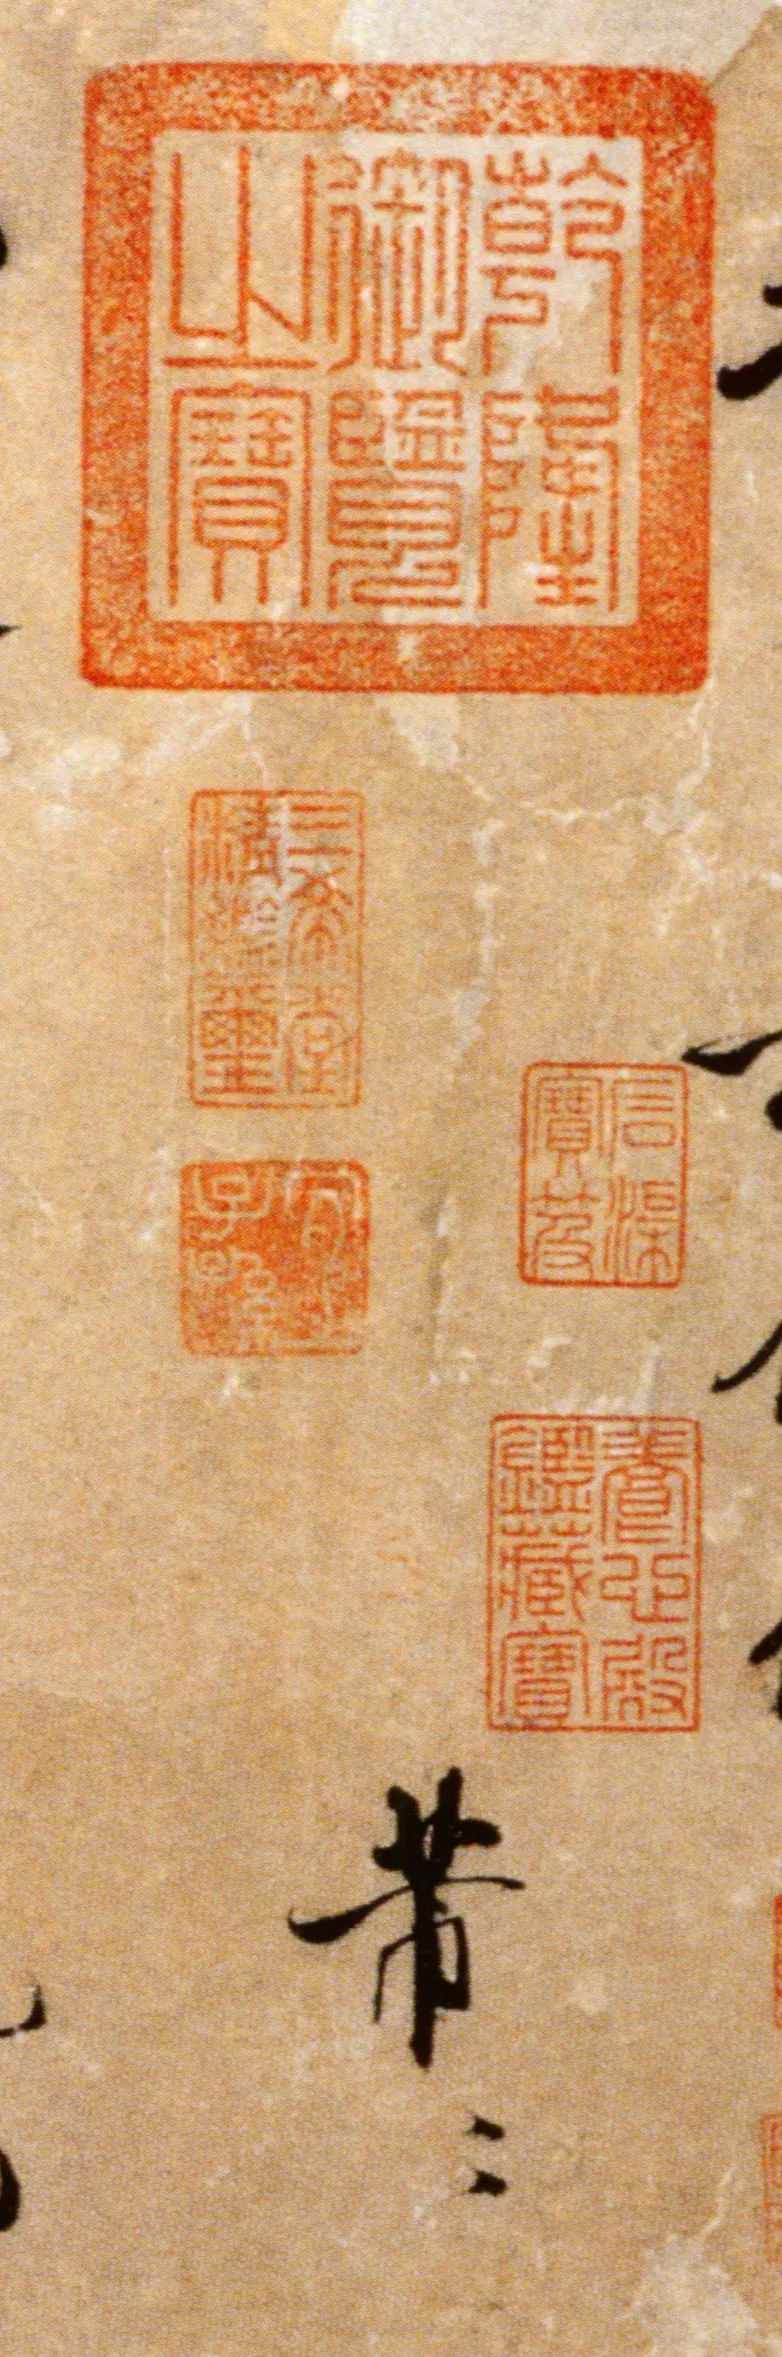 乾隆
御覽
之寶
石渠
寶笈
養心殿
鑑藏寶
三希堂
精鑑璽
宜
子孫
芾